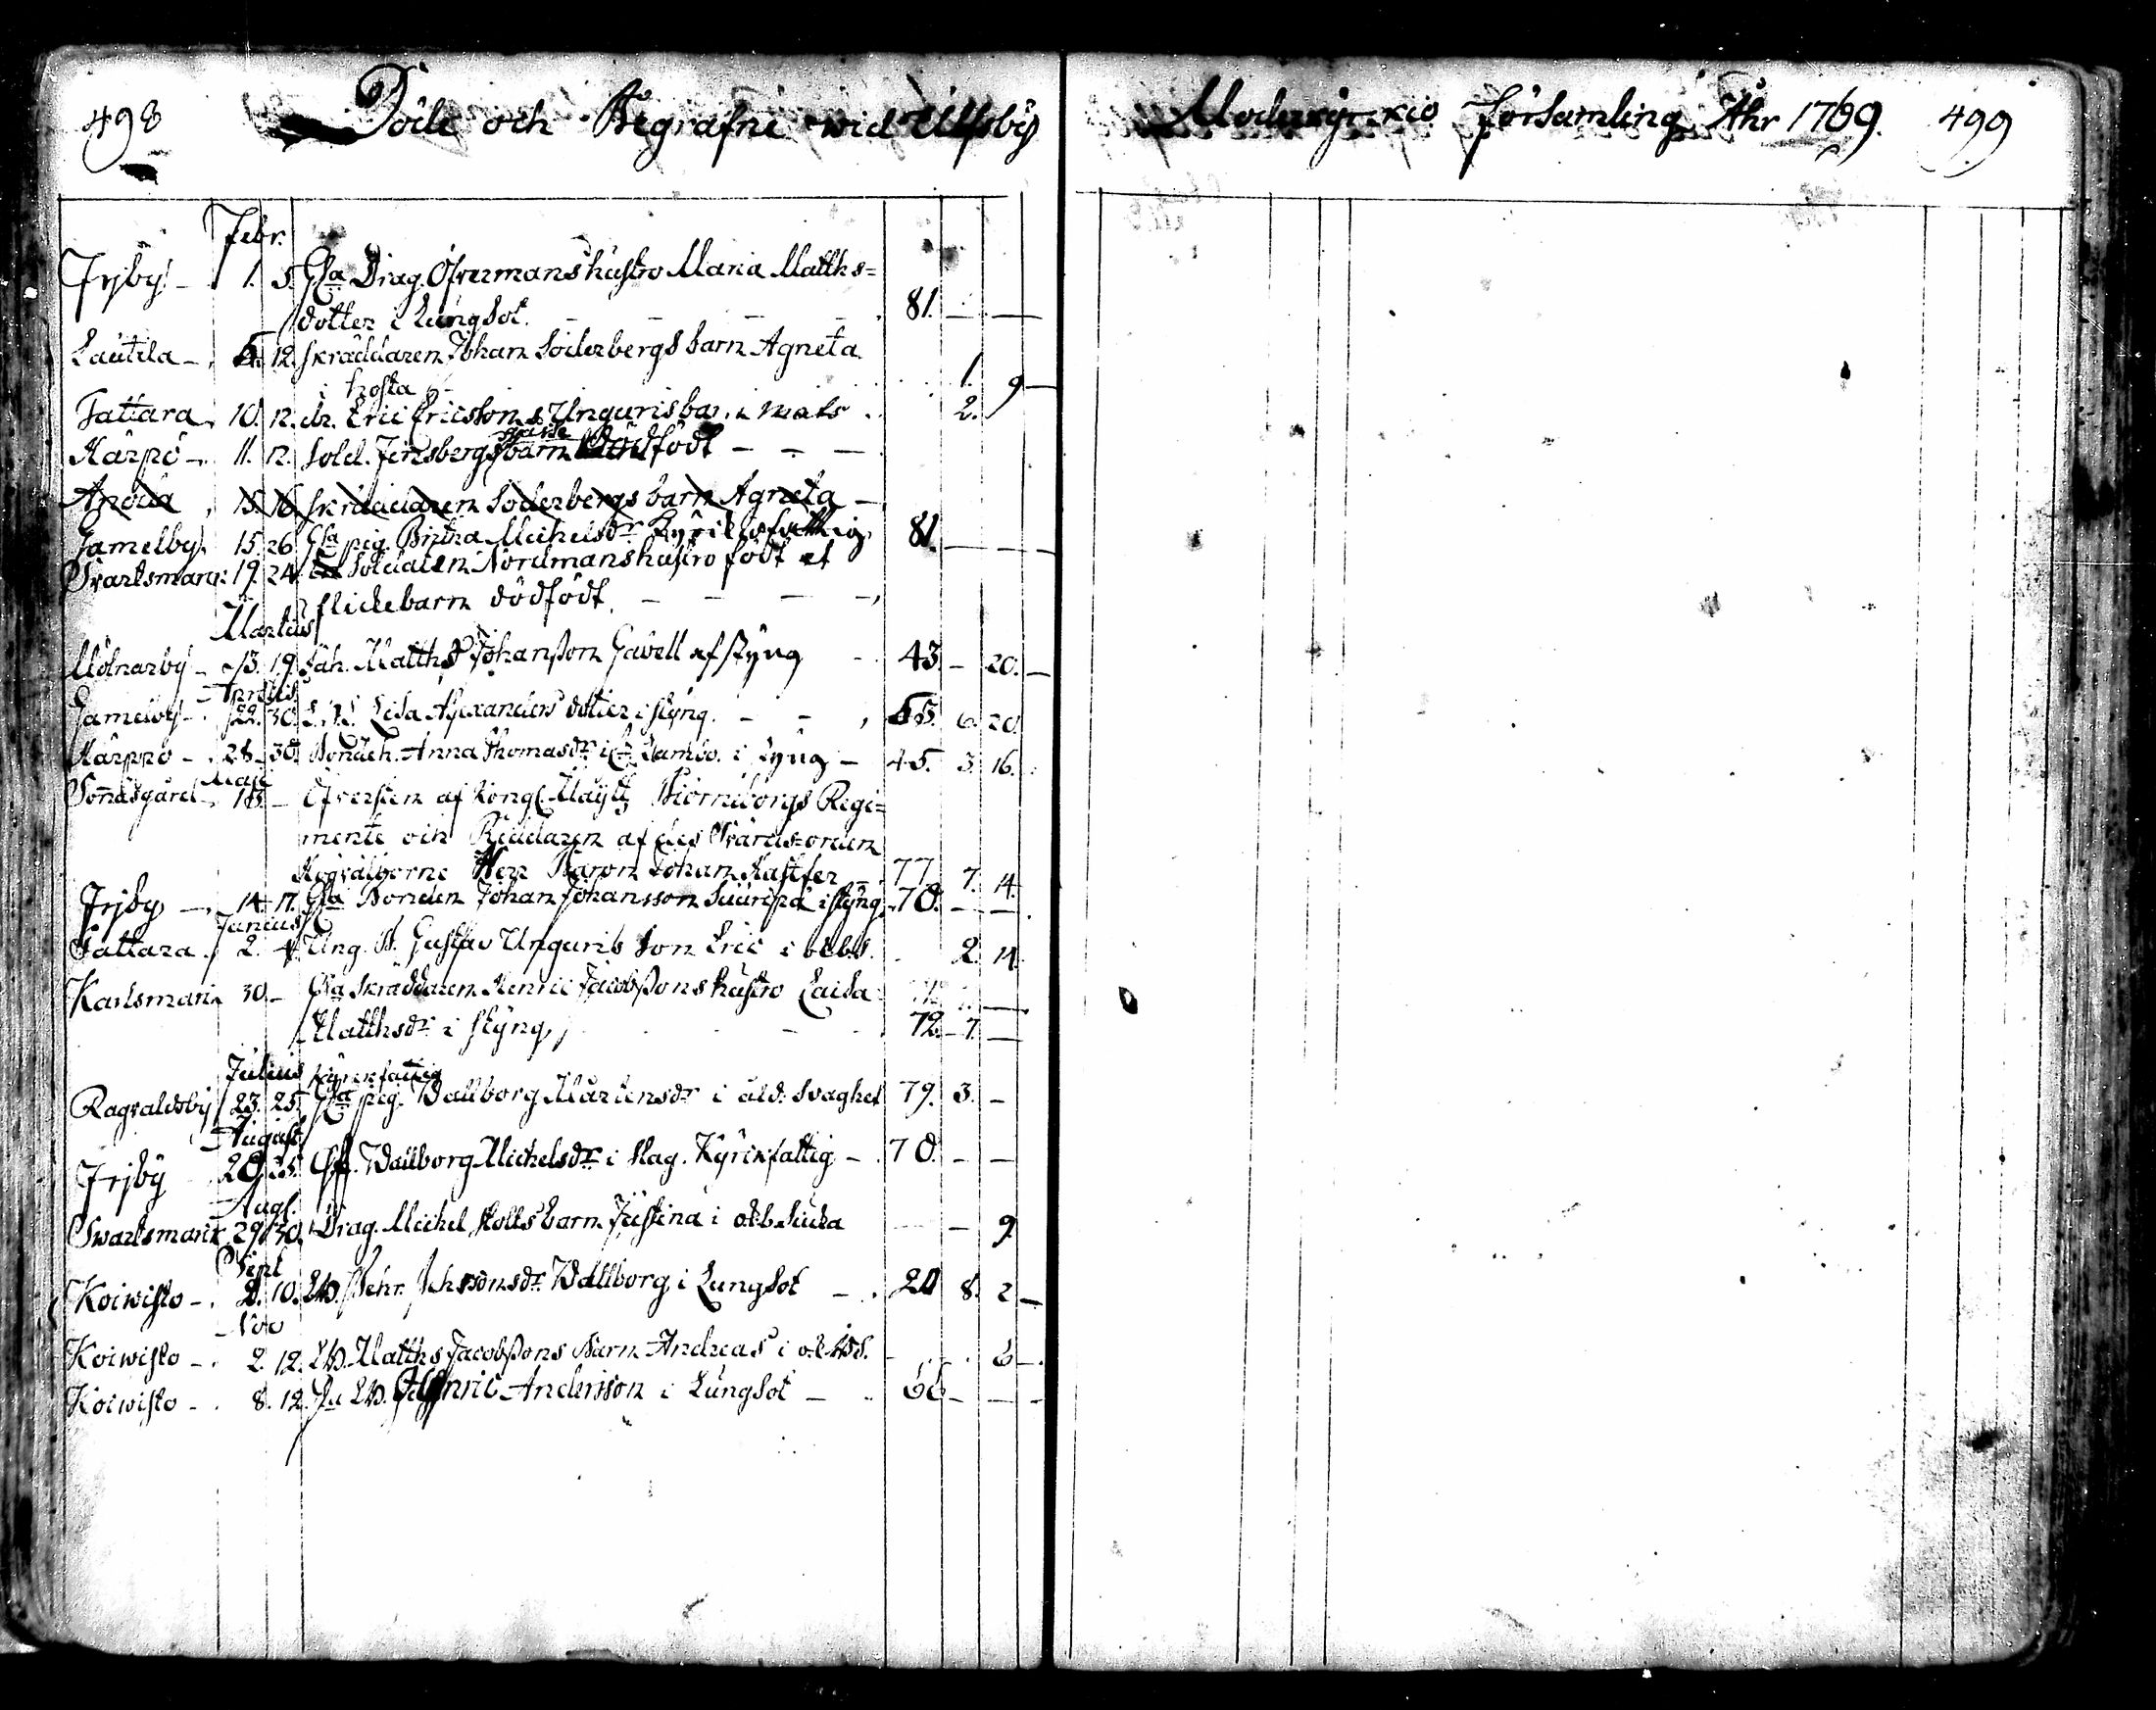 498 Döde och Begrafne wid Ulfsby Moderkyrkio Församling Åhr 1769. 499
Febr.
Irjby - 1. 5. Gla Drag. Öfvermans hustro Maria Matths=
dotter i Lungsot. - - - 81. - -
Lautila - 5. 12. Skräddaren Johan Söderbergs barn Agneta
i hosta 1. 9 -
Tattara. 10. 12. Eric Ericssons Unguris bar. 2.
Härpö - 11. 12. Sold. barn dödfödt - - -
Anola 15. 16. Skräddaren Söderbergs barn Agneta -
Gamelby. 15. 26. Gla pig. Britha Michelsdr Kyrkiofattig 81. - - -
Svartsmark 19. 24. Soldaten Nordmans hustro födt et
flickebarn dödfödt. - - - -
Martius
Mölnarby - 13. 19. Matths Johansson Gavell af styng - 43. - 20. -
Aprilis
Gamelby - 22. 30. Lisa Alexanders dotter i styng. - - 55. 6. 20.
Härpö - 28. 30. Anna Thomasdr i styng - 45. 3. 16.
Maji
Sonnäsgård - 18. - Öfversten af Kongl. Maytz Biörneborgs Regi=
mente och Riddaren af des Svärds=orden
Högvälborne Herr Baron Johan 77. 7. 14.
Irjby - 14. 17. Gla Bonden Johan Johansson i styng. 70. - -
Junius
Tattara. 2. 4. Ung. B. Gustav Unguris son Eric i 2. 14.
Karlsmark 30. - Gla Skräddaren Henric Jacobssons hustro Caisa
Matthsdr i styng, - 72. 7. -
Julius Kyrkfattig
Ragvaldsby 23. 25. Gla pig. Wallborg Mårtensdr i åld. svaghet 79. 3. -
August.
Irjby 20. 25. Wallborg Michelsdr i slag. Kyrkfattig - 70. - -
Aug.
Swartsmark 29. 30. Drag. Michel Stolts barn Justina i - 9.
Sept
Koiwisto - 2. 10. Wallborg i Lungsot - 20 8. 2 -
Nov
Koiwisto - 2. 12. Matths Jacobssons barn Andreas i 6 -
Koiwisto - 8. 12. Henric Andersson i Lungsot - 66 - - -